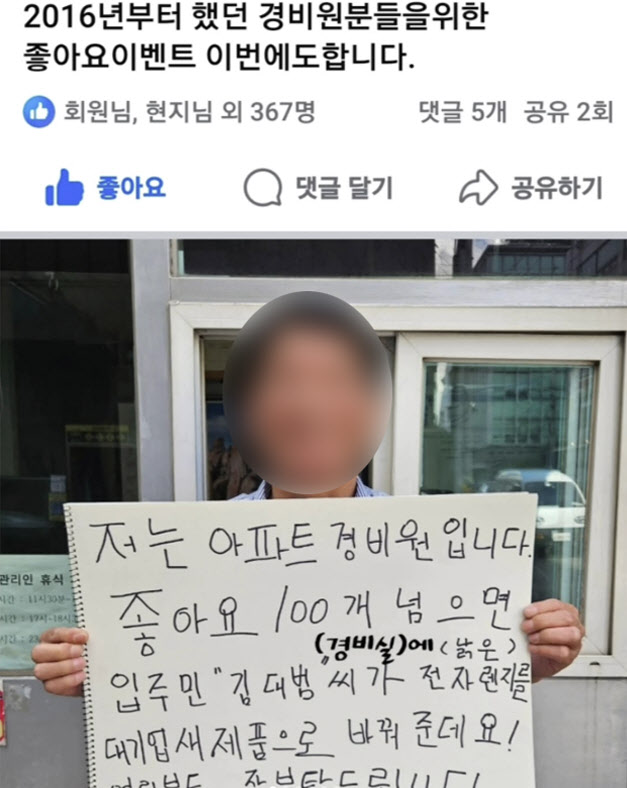 2016년부터 했던 경비원분들을위한
좋아요이벤트 이번에도합니다.
회원님, 현지님 외 367명 댓글 5개 공유 2회
좋아요 댓글 달기 공유하기
저는 아파트 경비원입니다.
좋아요 100개 넘으면
(경비실)에 (낡은)
입주민 "김대범"씨가 전자렌지를
대기업새제품으로 바꿔준데요!
잘부탁드립니다!
관리인 휴식